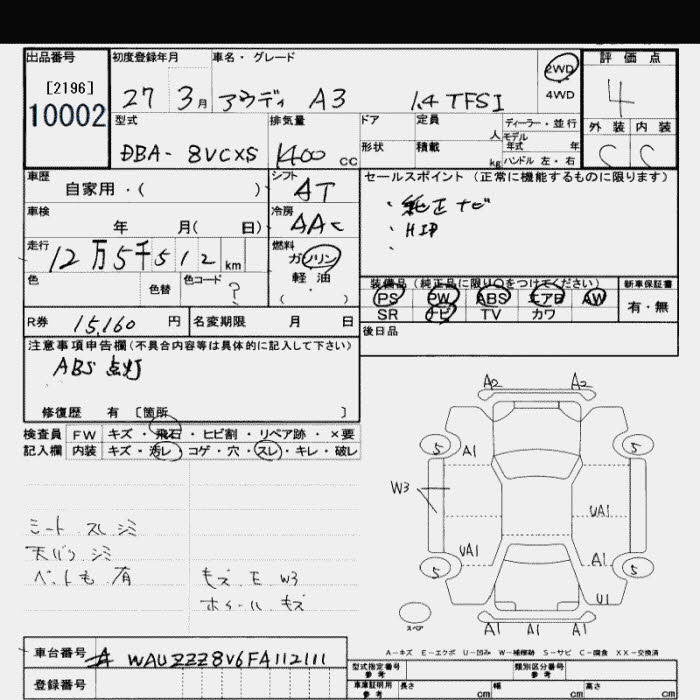 出品番号 初度登録年月 車名・グレード 2WD 評価点
[2196] 27 3月 アウディ A3 1.4 TFSI 4WD 4
10002 型式 排気量 ドア 定員 人 ディーラー・並行 外装 内装
DBA-8VCXS 1400 cc 形状 積載 kg モデル年式 年 ハンドル 左・右 C C
車歴 自家用・( ) シフト AT セールスポイント (正常に機能するものに限ります)
車検 年 月( 日) 冷房 AAC ・純正ナビ
・HID
・
走行 12万5千512 km 燃料 ガソリン
色 色替 色コード ? 軽油 ( ・ )
装備品 (純正品に限り○をつけてください) 新車保証書
PS PW ABS エアB AW 有・無
SR ナビ TV カワ
R券 15,160 円 名変期限 月 日 後日品
注意事項申告欄(不具合内容等は具体的に記入して下さい)
ABS 点灯
修復歴 有 〔箇所 〕
検査員 FW キズ・飛石・ヒビ割・リペア跡・×要
記入欄 内装 キズ・汚レ・コゲ・穴・スレ・キレ・破レ
A2 A2
5 A1 5
W3
UA1
UA1 A1
5 5
U1
スペア A1 A1 A1
シート スレ シミ
天バリ シミ
ペットも 有 キズ E W3
ホイール キズ
A-キズ E-エクボ U-凹み W-補修跡 S-サビ C-腐食 XX-交換済
車台番号 WAUZZZ8V6FA112111
型式指定番号 参考 類別区分番号 参考
登録番号 車庫証明用 参考 長さ cm 幅 cm 高さ cm